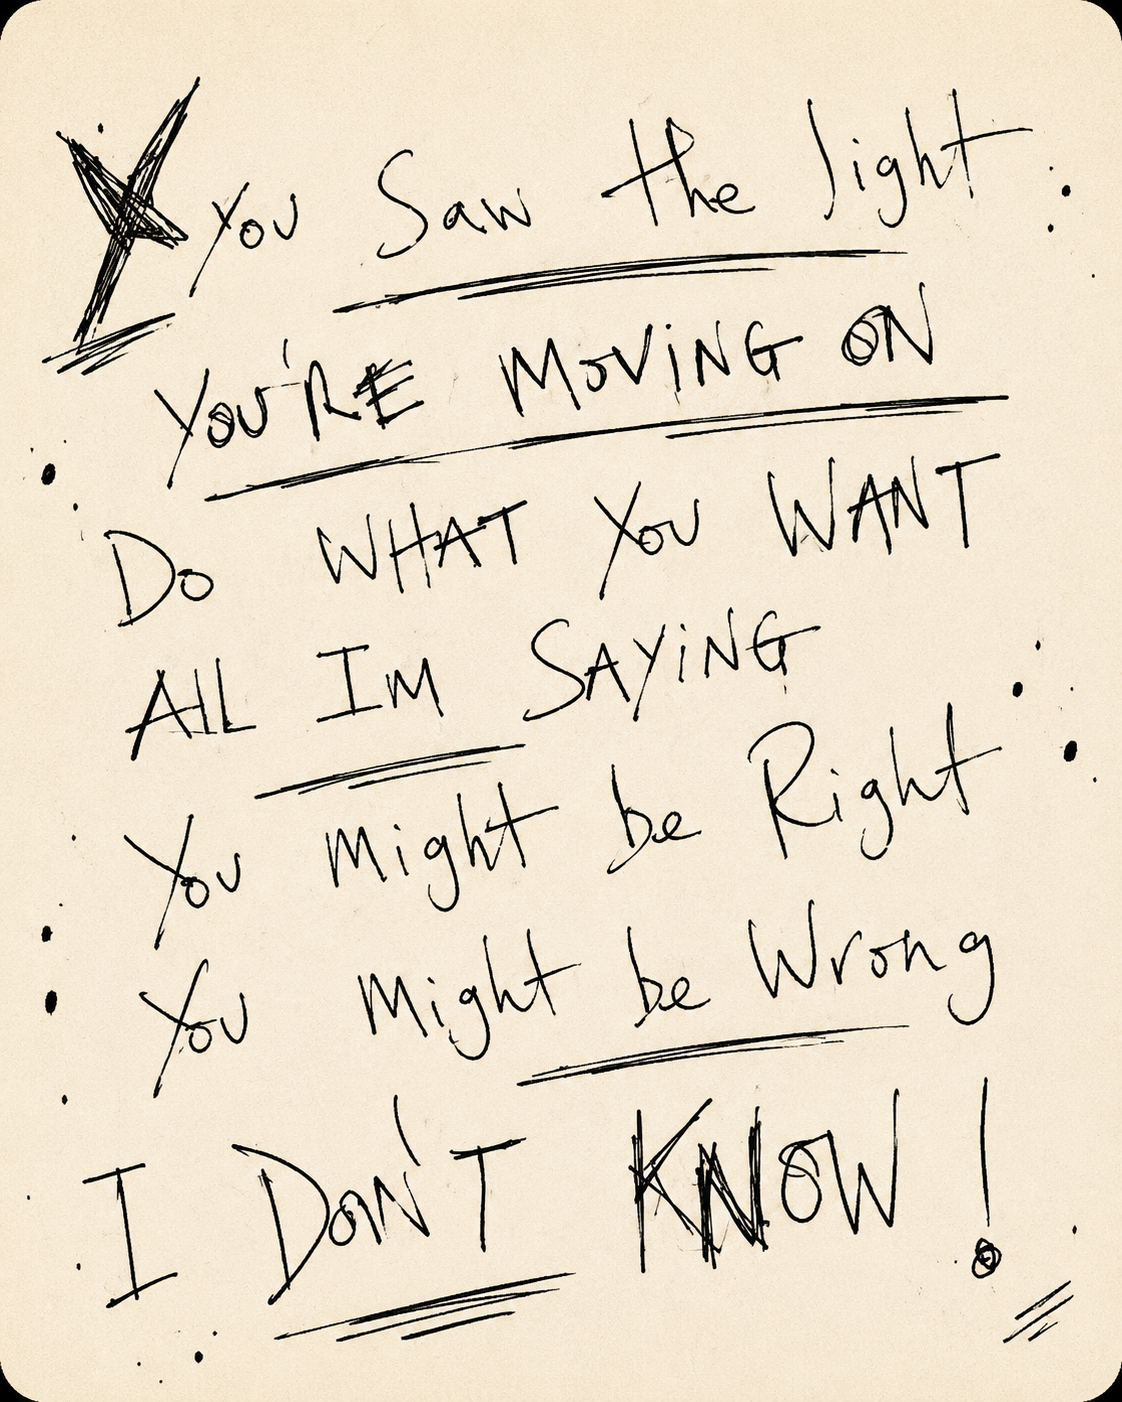 You Saw the light
YOU'RE MOVING ON
DO WHAT YOU WANT
All IM SAYiNG
You Might be Right
You Might be Wrong
I DON'T KNOW!